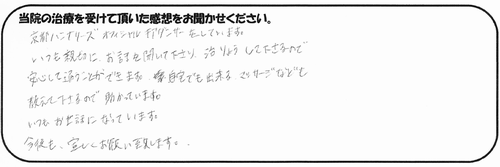 当院の治療を受けて頂いた感想をお聞かせください。
京都ハンナリーズオフィシャルチアダンサーをしています。
いつも親切に、お話を聞いて下さり、治りょうして下さるので
安心して通うことができます。寮自宅でも出来るマッサージなども
教えて下さるので助かっています。
いつもお世話になっています。
今後も、宜しくお願い致します。